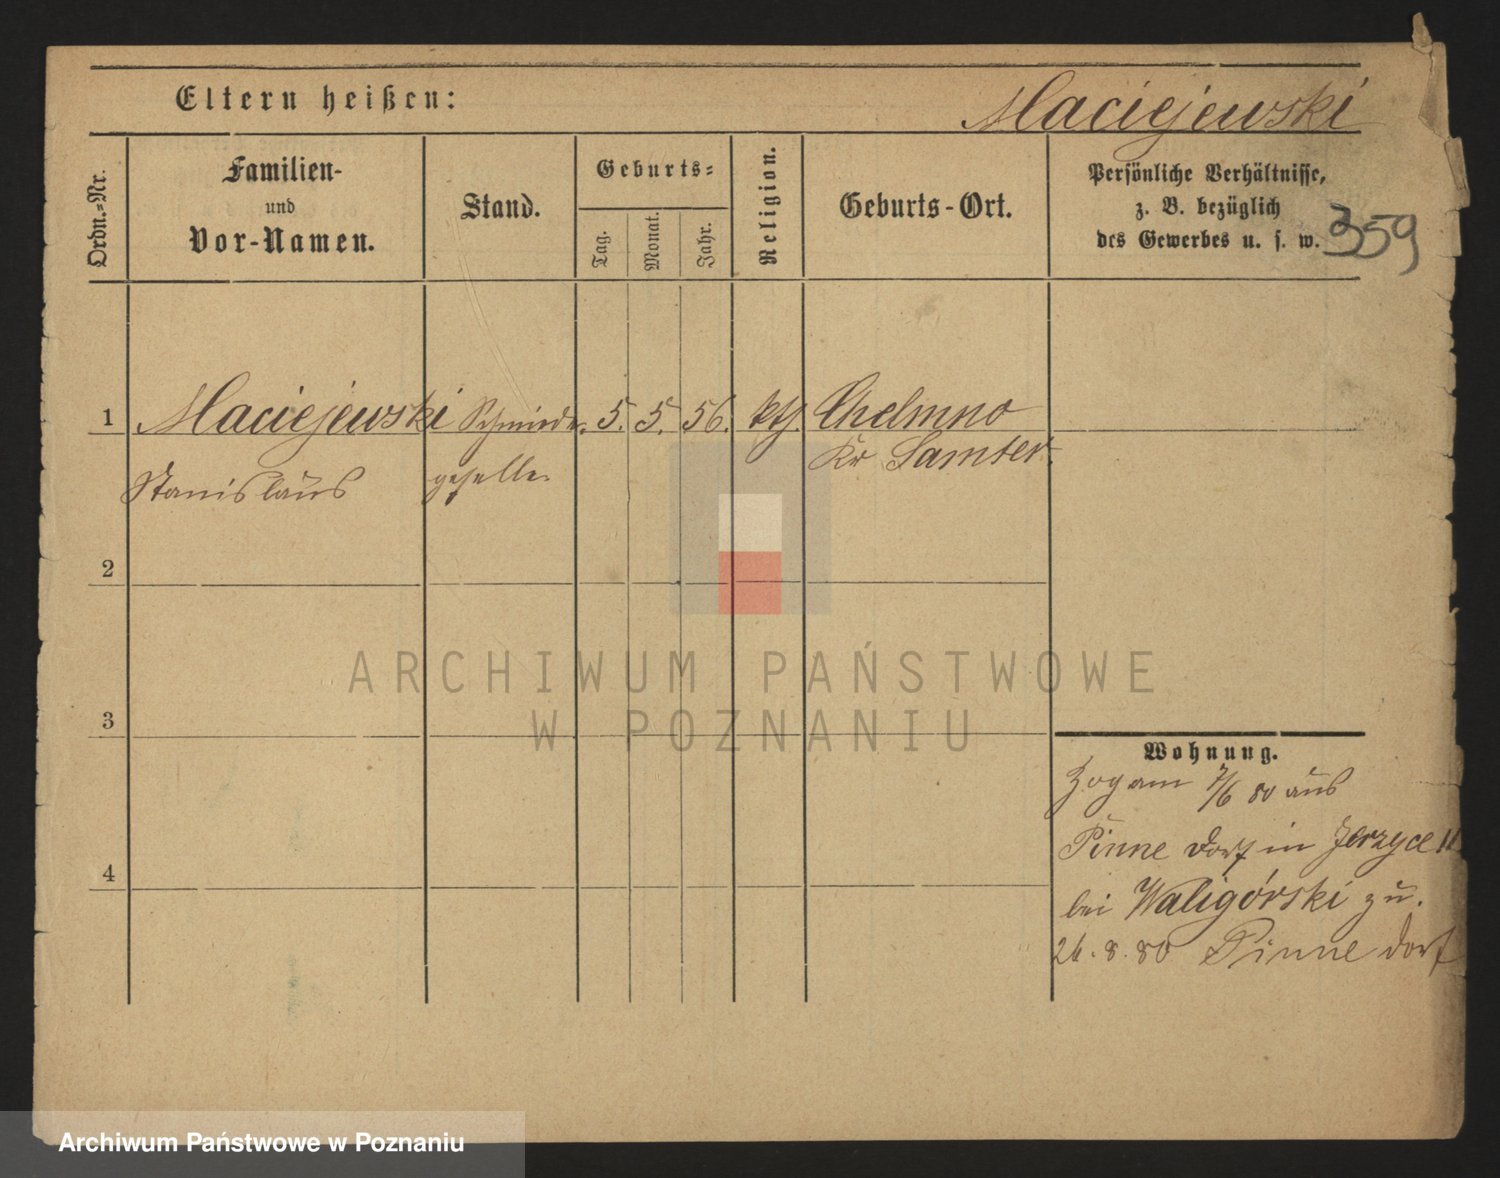 Eltern heißen:
Maciejewski
Ordn.-Nr.
Familien-
und
Vor-Namen.
Stand.
Geburts-
Tag.
Monat.
Jahr.
Religion.
Geburts-Ort.
Persönliche Verhältnisse,
z. B. bezüglich
des Gewerbes u. s. w.
359
1 Maciejewski Schmiede- 5. 5. 56. kth. Chelmno
Stanislaus geselle Kr Samter.
2
3
4
Wohnung.
Zog am 7/6 80 aus
Pinne Dorf in Jerzyce 11
bei Waligórski zu.
26.8.80 Pinne Dorf
ARCHIWUM PAŃSTWOWE
W POZNANIU
Archiwum Państwowe w Poznaniu